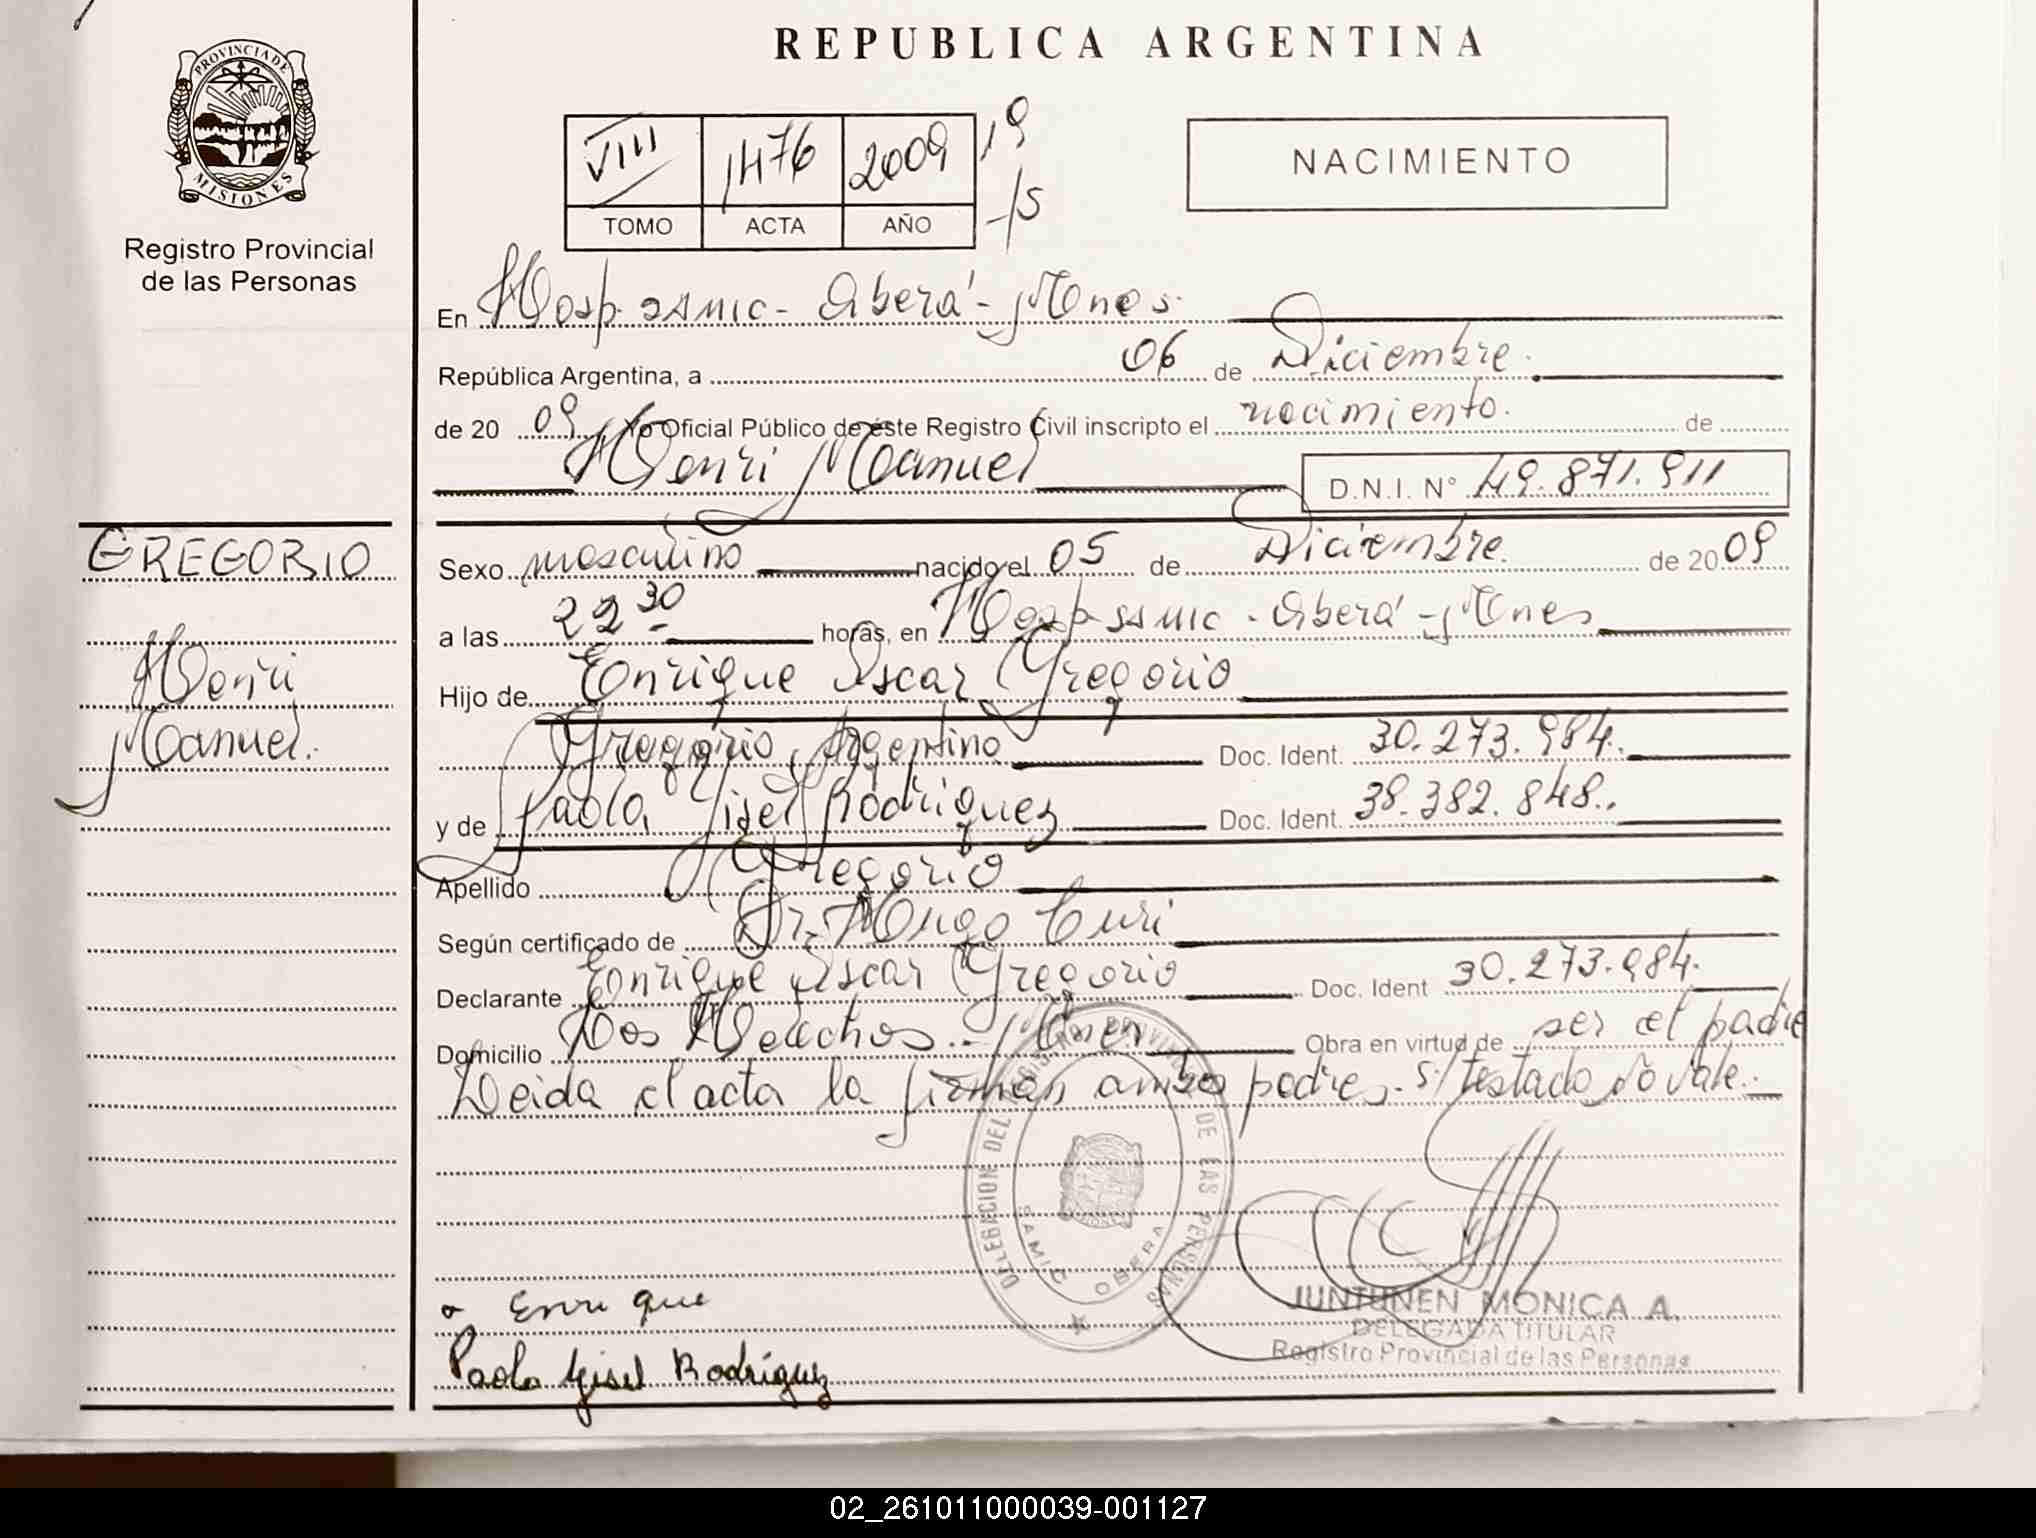 REPUBLICA ARGENTINA
PROVINCIA DE MISIONES
Registro Provincial
de las Personas
VIII 1476 2009 19
TOMO ACTA AÑO
NACIMIENTO
En Hosp. SAMIC - Oberá - Mnes.
República Argentina, a 06 de Diciembre.
de 20 09 Yo Oficial Público de éste Registro Civil inscripto el nacimiento. de
Henri Manuel D.N.I. N° 49.871.911
GREGORIO
Henri
Manuel.
Sexo masculino nacido el 05 de Diciembre. de 20 09
a las 22 30 horas, en Hosp SAMIC - Oberá - Mnes
Hijo de Enrique Oscar Gregorio
Gregorio, Argentino Doc. Ident. 30.273.984.
y de Paola Gisel Rodriguez Doc. Ident. 38.382.848.
Apellido Gregorio
Según certificado de Dr. Hugo Curi
Declarante Enrique Oscar Gregorio Doc. Ident 30.273.984.
Domicilio Dos Helechos - Mnes Obra en virtud de ser el padre
Leida el acta la firman ambos padres. S/ testado No vale.
DELEGACION DEL REGISTRO PROVINCIAL DE LAS PERSONAS
SAMIC OBERA
Enrique
Paola Gisel Rodriguez
JUNTUNEN MONICA A.
DELEGADA TITULAR
Registro Provincial de las Personas
02_261011000039-001127